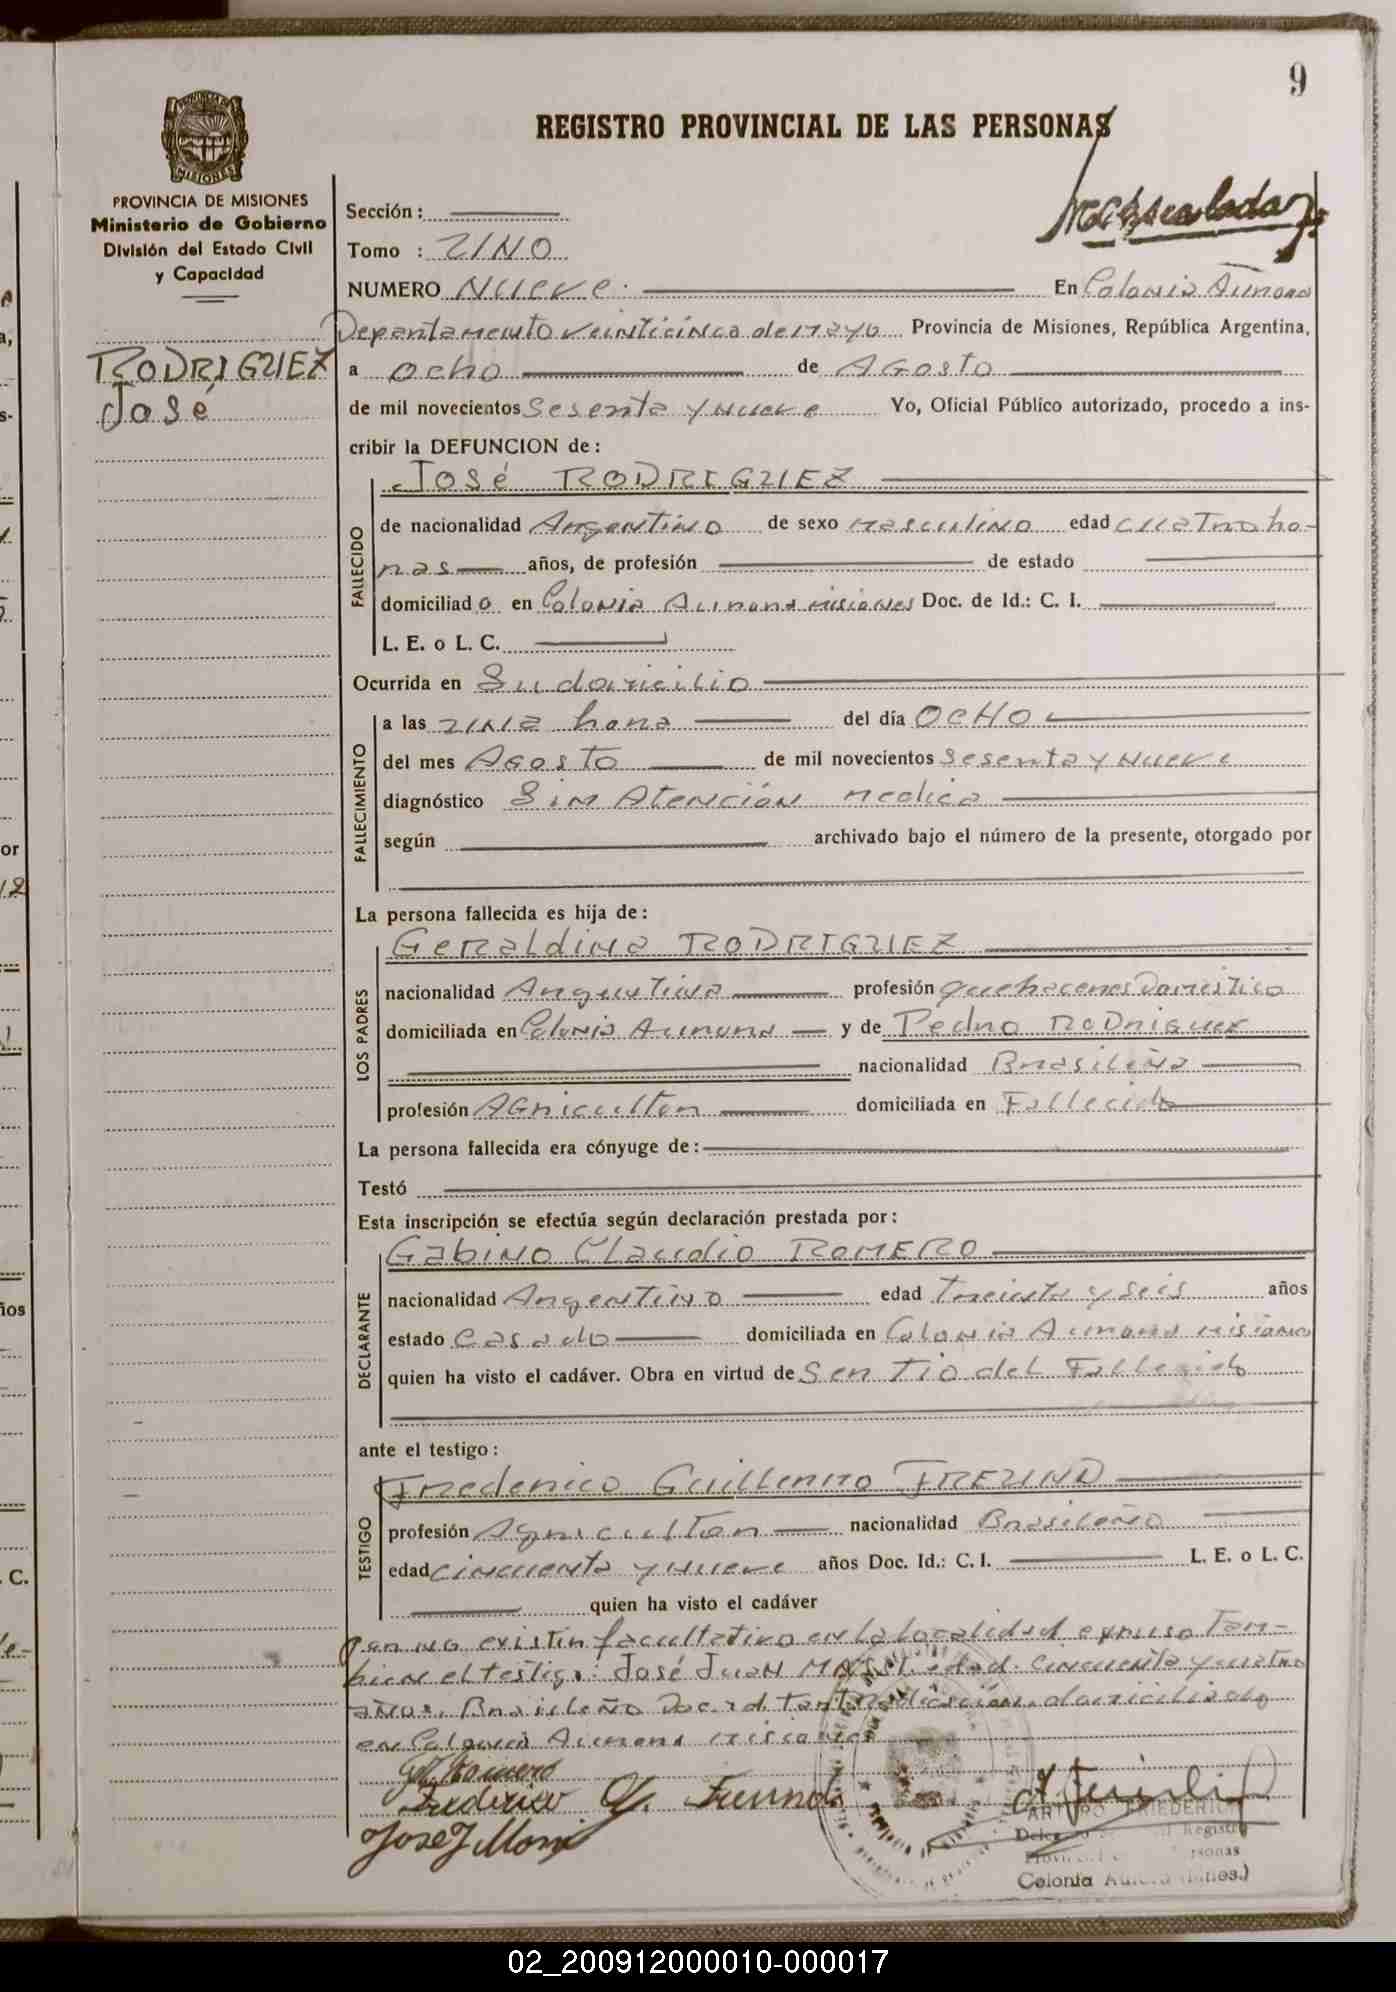 9
REGISTRO PROVINCIAL DE LAS PERSONAS
PROVINCIA DE MISIONES
Ministerio de Gobierno
División del Estado Civil
y Capacidad
RODRIGUEZ
José
Sección:
Tomo : UNO
NUMERO Nueve. En Colonia Aurora
Departamento Veinticinco de Mayo Provincia de Misiones, República Argentina,
a ocho de Agosto
de mil novecientos Sesenta y nueve Yo, Oficial Público autorizado, procedo a ins-
cribir la DEFUNCION de:
José RODRIGUEZ
FALLECIDO
de nacionalidad Argentino de sexo masculino edad cuatro ho-
ras años, de profesión de estado
domiciliado en Colonia Aurora misiones Doc. de Id.: C. I.
L. E. o L. C.
Ocurrida en Su domicilio
FALLECIMIENTO
a las una hora del día OCHO
del mes Agosto de mil novecientos Sesenta y nueve
diagnóstico Sin Atención medica
según archivado bajo el número de la presente, otorgado por
La persona fallecida es hija de:
LOS PADRES
Geraldina RODRIGUEZ
nacionalidad Argentina profesión quehaceres Domestico
domiciliada en Colonia Aurora y de Pedro RODRIGUEZ
nacionalidad Brasileña
profesión Agricultor domiciliada en Fallecido
La persona fallecida era cónyuge de:
Testó
Esta inscripción se efectúa según declaración prestada por:
DECLARANTE
Gabino Claudio ROMERO
nacionalidad Argentino edad Treinta y seis años
estado Casado domiciliada en Colonia Aurora misiones
quien ha visto el cadáver. Obra en virtud de Ser Tio del Fallecido
ante el testigo:
TESTIGO
Frederico Guillermo FREUND
profesión Agricultor nacionalidad Brasileño
edad cincuenta y nueve años Doc. Id.: C. I. L. E. o L. C.
quien ha visto el cadáver
Por no existir facultativo en la localidad expuso Tam-
bien el testigo: José Juan edad. cincuenta y cuatro
años, Brasileño Doc. Id. domiciliado
en Colonia Aurora misiones
Romero
Frederico G. Freund
José J
ARTURO FRIEDERICH
Colonia Aurora (Mnes.)
02_200912000010-000017